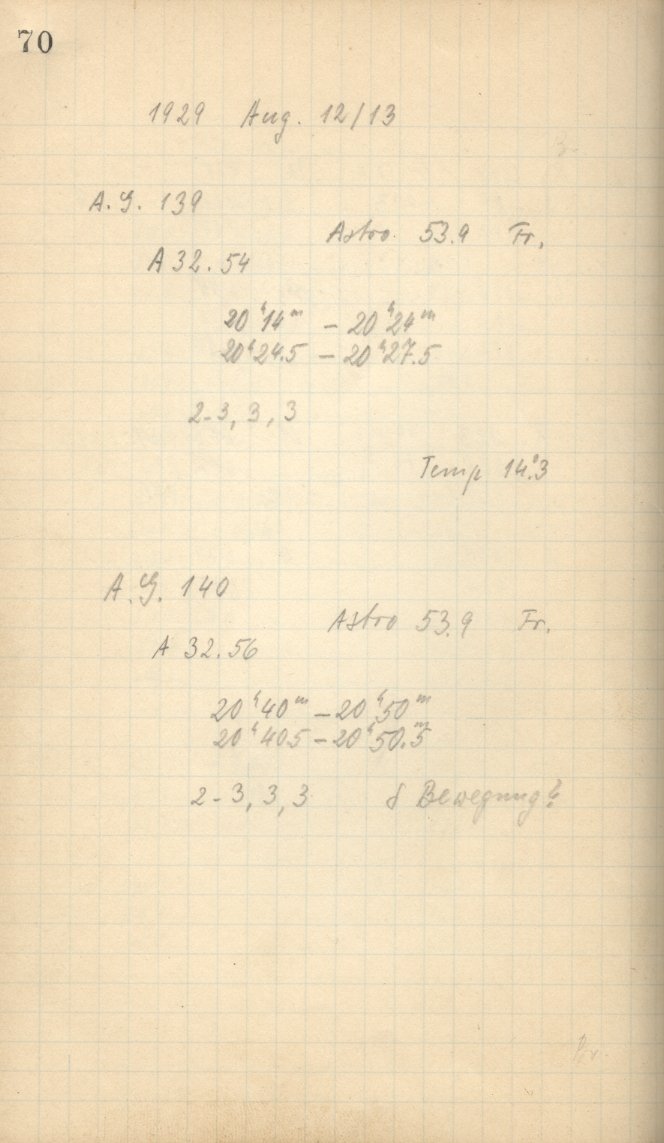 70
1929 Aug. 12/13
A.G. 139
Astro 53.9 Fr.
A 32.54
20ʰ14ᵐ – 20ʰ24ᵐ
20ʰ24.5 – 20ʰ27.5
2-3, 3, 3
Temp 14.°3
A.G. 140
Astro 53.9 Fr.
A 32.56
20ʰ40ᵐ – 20ʰ50ᵐ
20ʰ40.5 – 20ʰ50.ᵐ5
2-3, 3, 3 δ Bewegung?